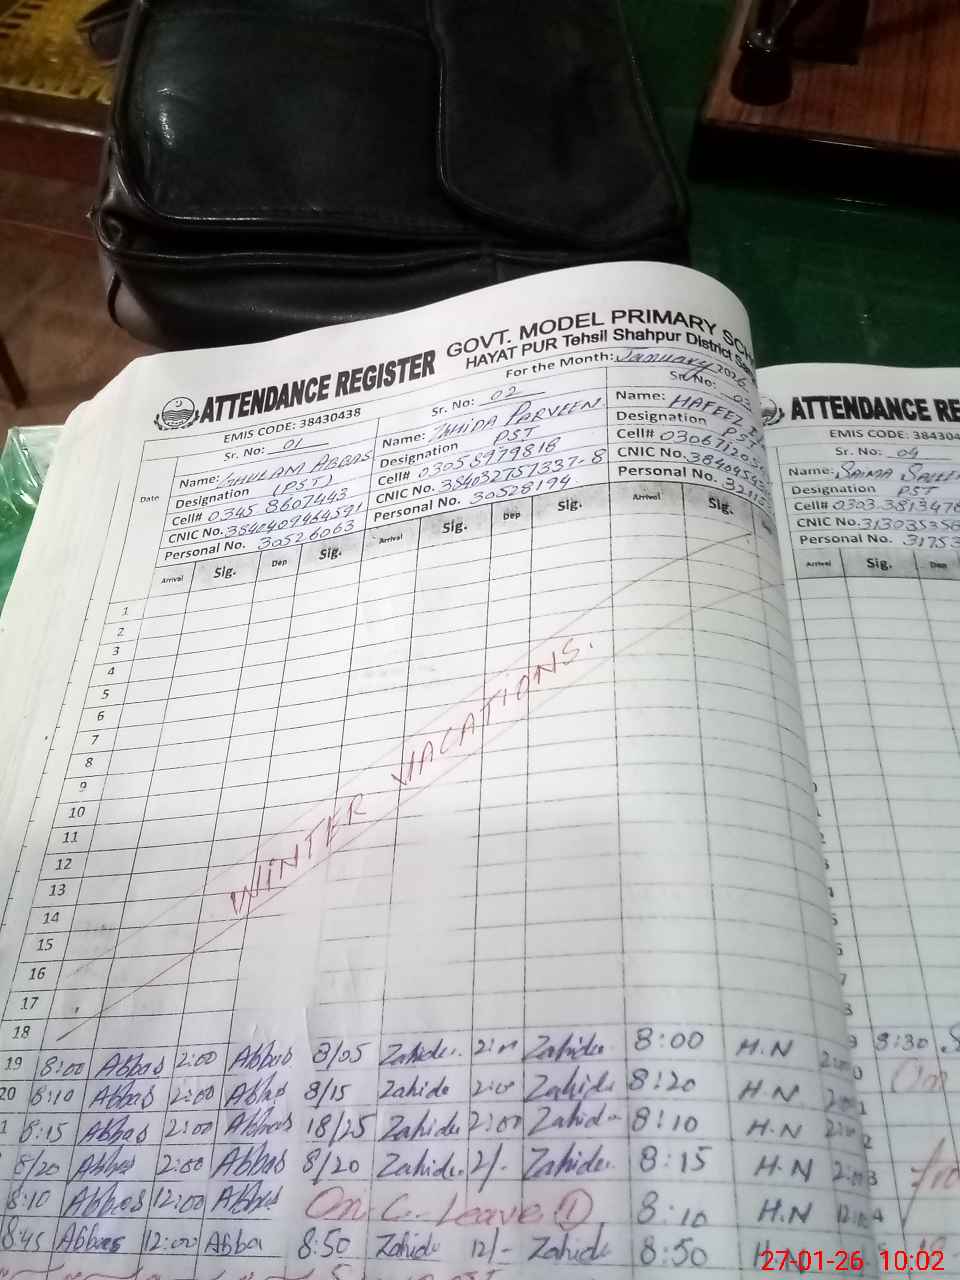 ATTENDANCE REGISTER
GOVT. MODEL PRIMARY
HAYAT PUR Tehsil Shahpur District
EMIS CODE: 38430438
For the Month: January 2026
Sr. No: 01
Name: GHULAM ABBAS
Designation (PST)
Cell# 0345 8607443
CNIC No.
Personal No. 30526063
Sr. No: 02
Name: ZAHIDA PARVEEN
Designation PST
Cell# 03058979818
CNIC No. 3840327573378
Personal No. 30528194
Sr. No: 03
Name: HAFEEZ
Designation PST
Cell#
CNIC No.
Personal No.
Date
Arrival Sig. Dep Sig. Arrival Sig. Dep Sig. Arrival Sig.
1
2
3
4
5
6
7
8
9
10
11
12
13
14
15
16
17
18
WINTER VACATIONS.
19 8:00 Abbas 2:00 Abbas 8/05 Zahida 2:00 Zahida 8:00 H.N 2:00
20 8:10 Abbas 2:00 Abbas 8/15 Zahida 2:00 Zahida 8:20 H.N
8:15 Abbas 2:00 Abbas Zahida 2:00 Zahida 8:10 H.N 2:00
8/20 Abbas 2:00 Abbas 8/20 Zahida 2/- Zahida 8:15 H.N 2:00
8:10 Abbas 12:00 Abbas On C. Leave 1 8:10 H.N
8:45 Abbas 12:00 Abba 8:50 Zahida 12/- Zahida 8:50
ATTENDANCE
EMIS CODE:
Sr. No: 04
Name: SAIMA
Designation PST
Cell#
CNIC No.
Personal No.
Arrival Sig. Dep
8:30
On
27-01-26 10:02